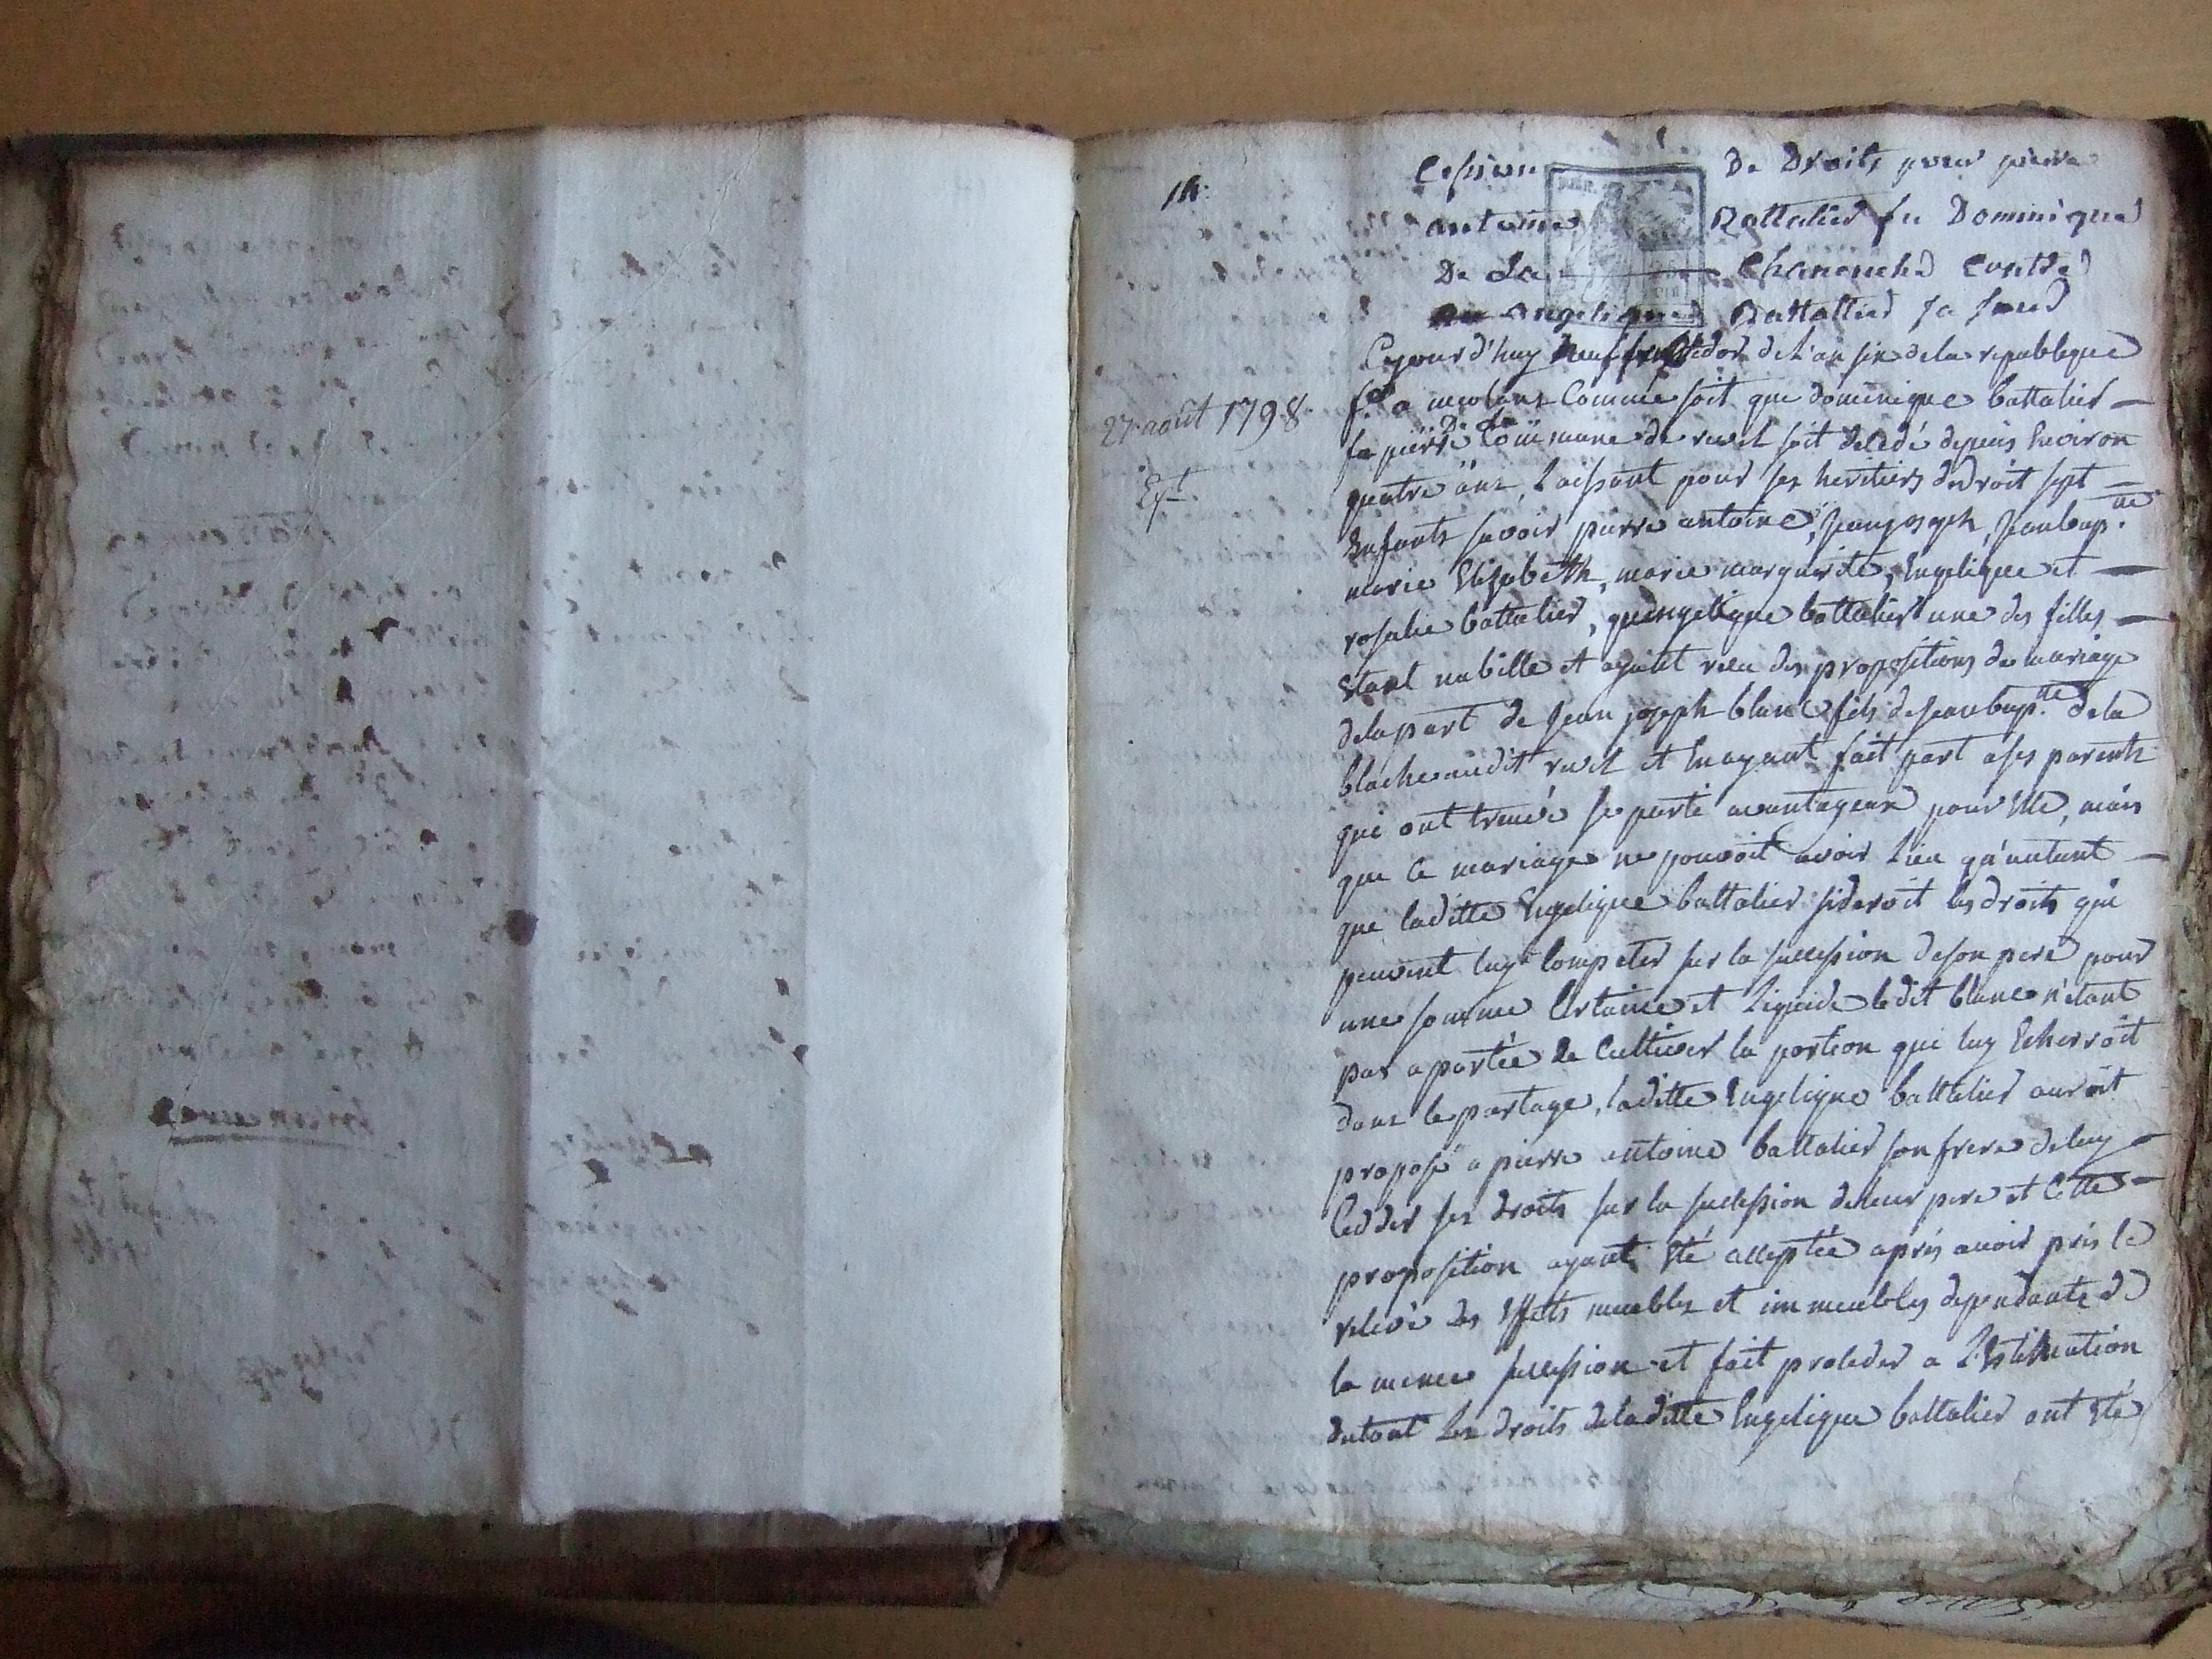 14.
Cession De Droits pour pierre
antoine Battalier fu Dominique
De La Chanenche Contre
Angelique Battallier sa sœur
27 août 1798
Ext.
Cejourd'huy neuf fructidor de l'an six de la republique
f.se a meolans Comme soit que dominique battalier
fu pierre De la Commune de revel soit decedé depuis Environ
quatre ans, Laissant pour ses heritiers de droit sept
Enfants savoir pierre antoine, Jean joseph, Jean bap.te
marie Elisabeth, marie marguerite, Engelique et
rosalie battalier, qu'engelique battalier une des filles
Etant nubille et ayant recu des propositions de mariage
de la part de Jean joseph blanc fils de jean bap.te de la
blache audit revel et En ayant fait part a ses parents
qui ont trouvé se parti avantageux pour Elle, mais
que Ce mariage ne pouvoit avoir Lieu qu'autant
que laditte Engelique battalier sideroit les droits qui
peuvent luy Competer sur la succession de son pere pour
une somme Certaine et Liquide ledit blanc n'etant
pas a portée de Cultiver la portion qui luy Echerroit
dans le partage, laditte Engelique battalier auroit
proposé a pierre antoine battalier son frere de luy
Cedder ses droits sur la succession de leur pere et Cette
proposition ayant Eté acceptée aprés avoir pris le
relevé des Effets meubles et immeubles dependants de
la meme succession et fait proceder a L'Estimation
du tout Les droits de laditte Engelique battalier ont Eté